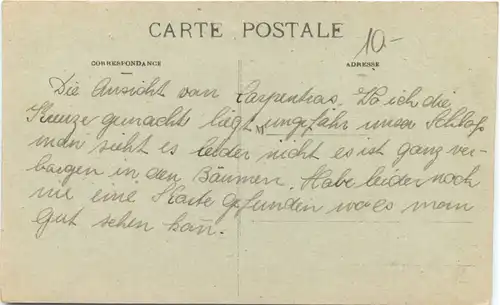 CARTE POSTALE
10-
CORRESPONDANCE
ADRESSE
Die Ansicht von Carpentras. Wo ich die
Kreuze gemacht liegt ungefähr unser Schloß
man sieht es leider nicht es ist ganz ver-
borgen in den Bäumen. Habe leider noch
nie eine Karte gefunden wo es man
gut sehen kan.